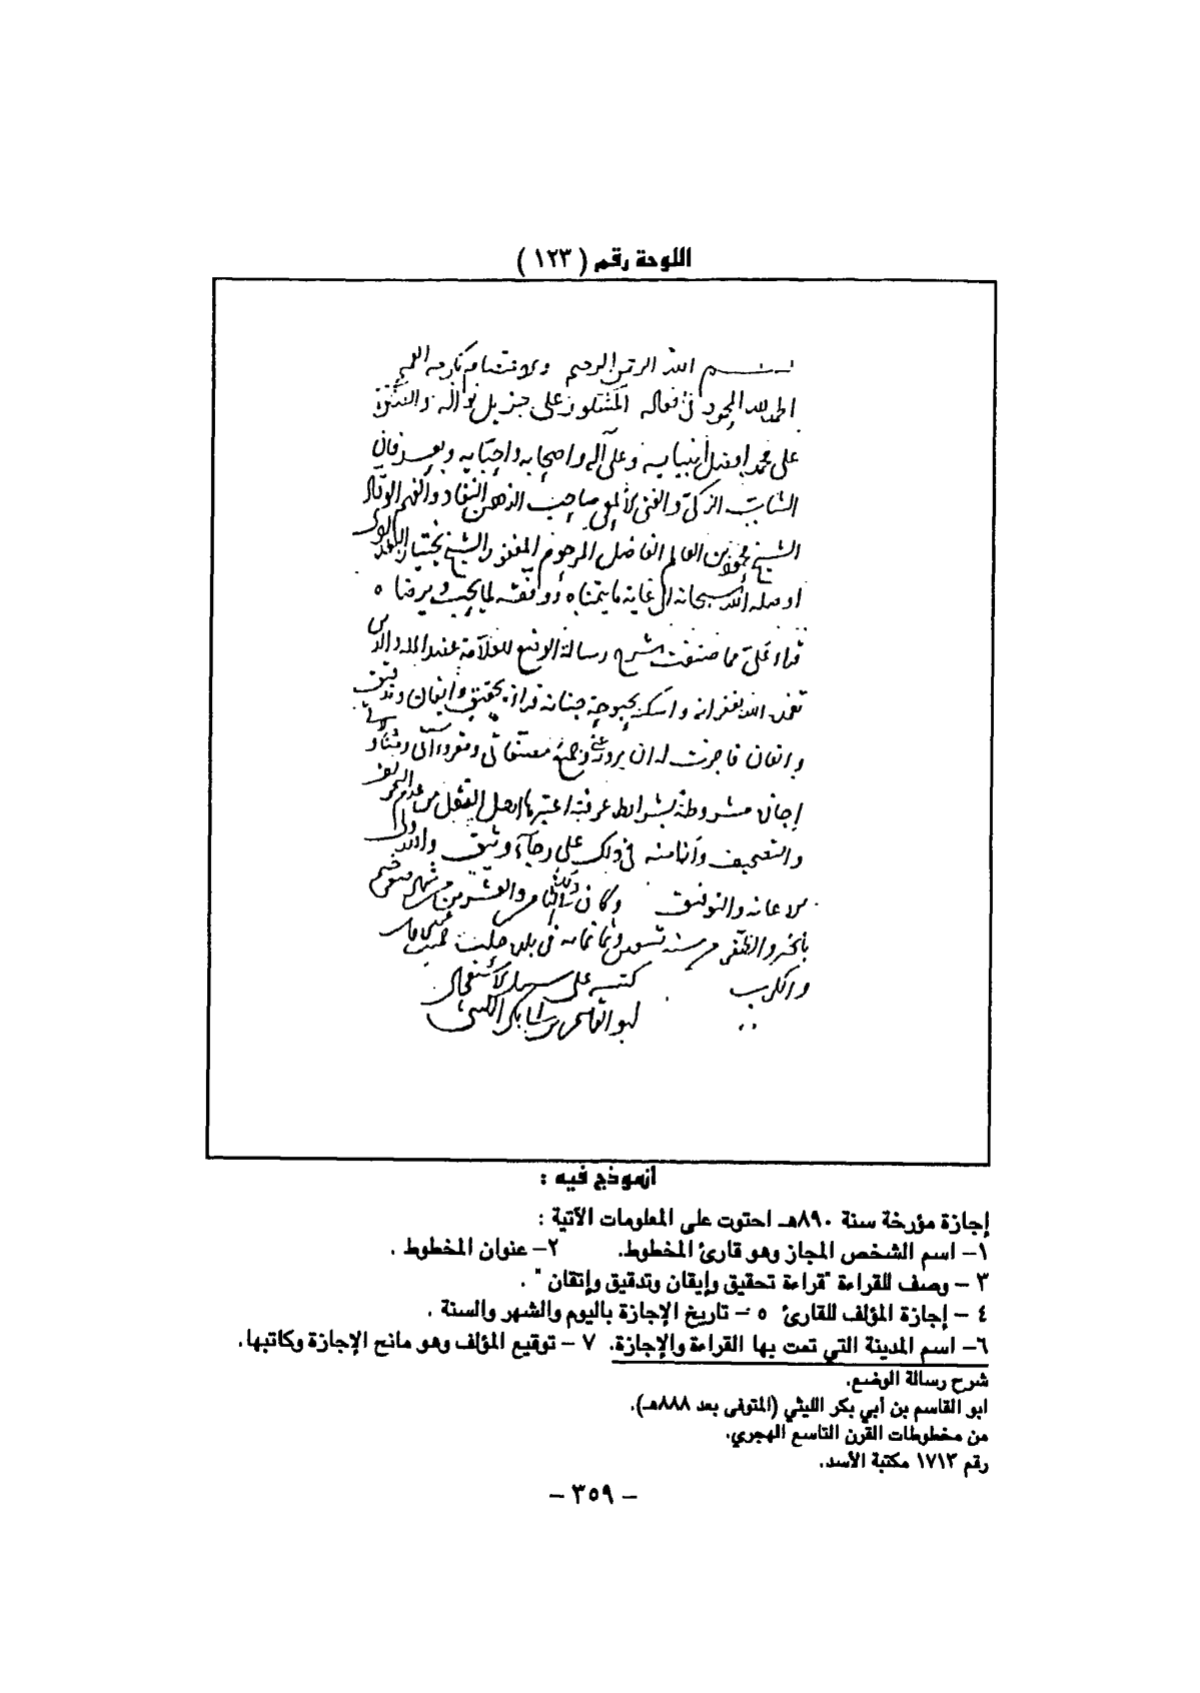 اللوحة رقم ( ١٢٣ )
بسم الله الرحمن الرحيم
الحمد لله المحمود في فعاله المشكور على جزيل نواله والصلوة
على محمد افضل انبيايه وعلى آله واصحابه واحبايه وبعد فان
الشاب الزكي والفتى الألمعي صاحب الذهن النقاد والفهم الوقاد
الشيخ محمود بن العالم الفاضل المرحوم المغفور الشيخ بختيار
اوصله الله سبحانه الى غاية ما يتمناه ووافقه لما يحب ويرضاه
قراء علي مما صنفت شرح رسالة الوضع للعلامة عضد الملة والدين
تغمده الله بغفرانه واسكنه بحبوحة جنانه قراءة تحقيق وايقان وتدقيق
واتقان فاجزت له ان يروي عني جميع مصنفاتي ومقروءاتي
إجازة مشروطة بشرائط عرفية اعتبرها اهل النقل من عدم التحريف
والتصحيف وانا منه في ذلك على رجاء وثيق والله ولى
الاعانة والتوفيق وكان ذلك والعشر من شهر صفر ختم
بالخير والظفر من سنة تسعين وثمانمائة في بلدة حلب
كتبه على سبيل الاستعجال
ابو القاسم بن ابي بكر الليثي
أنموذج فيه :
إجازة مؤرخة سنة ٨٩٠هـ احتوت على المعلومات الآتية :
١– اسم الشخص المجاز وهو قارئ المخطوط. ٢– عنوان المخطوط .
٣ – وصف للقراءة "قراءة تحقيق وإيقان وتدقيق وإتقان" .
٤ – إجازة المؤلف للقارئ ٥ – تاريخ الإجازة باليوم والشهر والسنة .
٦– اسم المدينة التي تمت بها القراءة والإجازة. ٧ – توقيع المؤلف وهو مانح الإجازة وكاتبها.
شرح رسالة الوضع.
ابو القاسم بن أبي بكر الليثي (المتوفى بعد ٨٨٨هـ).
من مخطوطات القرن التاسع الهجري.
رقم ١٧١٣ مكتبة الأسد.
– ٣٥٩ –